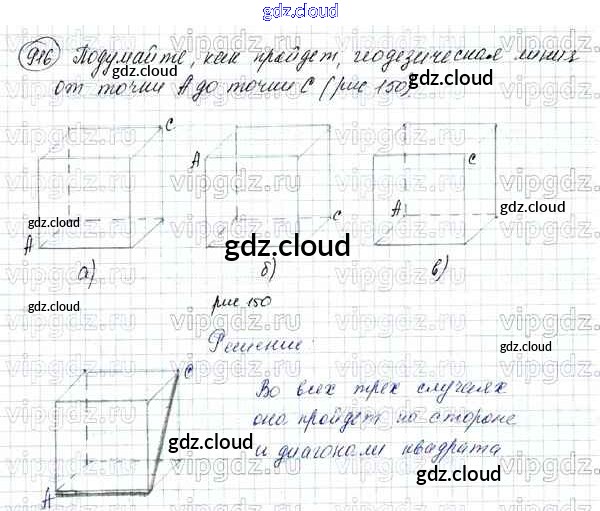 gdz.cloud
916 Подумайте, как пройдет, геодезическая линия
от точки А до точки С (рис 150).
gdz.cloud gdz.cloud
vipgdz.cz vipgdz.cz vipgdz.cz
C
A C
A
gdz.cloud gdz.cloud
A C
gdz.cloud
а) б) в)
gdz.cloud
рис 150
Решение:
gdz.cloud
C
Во всех трех случаях
она пройдет по стороне
и диагонали квадрата
gdz.cloud
gdz.cloud
A